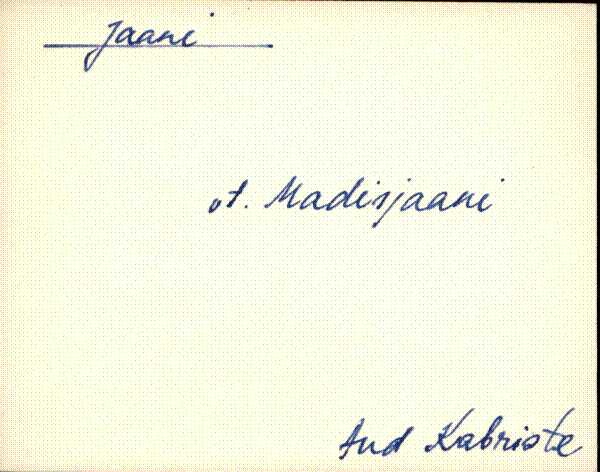 Jaani
vt. Madisjaani
Aud Kabriste